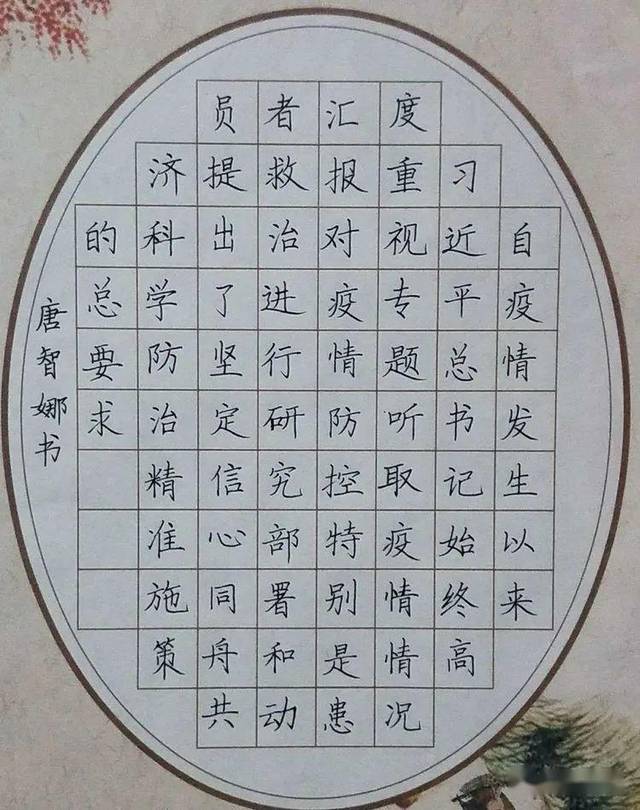 自疫情发生以来
习近平总书记始终高
度重视专题听取疫情情况
汇报对疫情防控特别是患
者救治进行研究部署和动
员提出了坚定信心同舟共
济科学防治精准施策
的总要求
唐智娜书